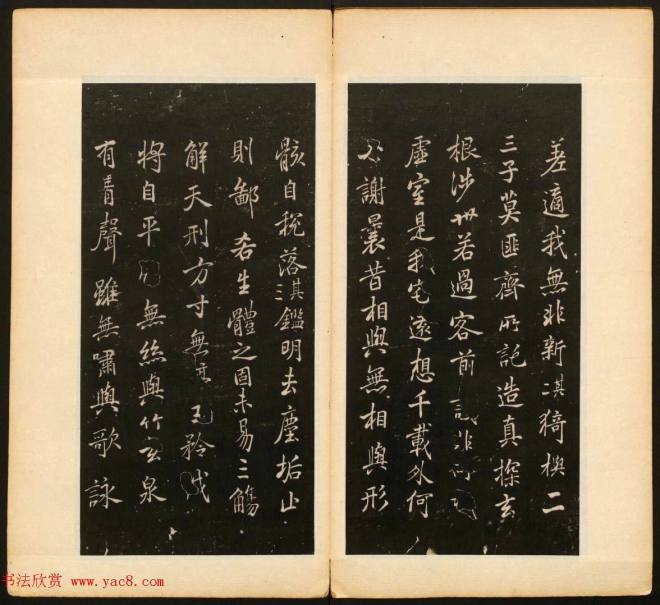 差適我無非新其二猗與二
三子莫匪齊所託造真探玄
根涉世若過客前識非所
虛室是我宅遠想千載外何
必謝曩昔相與無相與形
骸自稅落其三鑑明去塵垢止
則鄙吝生體之固未易三觴
解天刑方寸無矜伐
將自平無絲與竹玄泉
有清聲雖無嘯與歌詠
书法欣赏 www.yac8.com